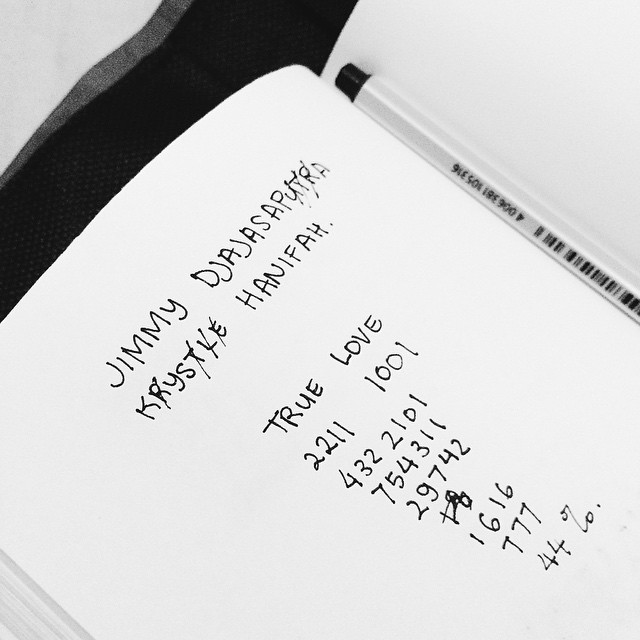 JIMMY DJAJASAPUTRA
KRYSTLE HANIFAH.
TRUE LOVE
2211 1001
432 2101
754311
29742
1616
777
44 %.
4 006381 105316